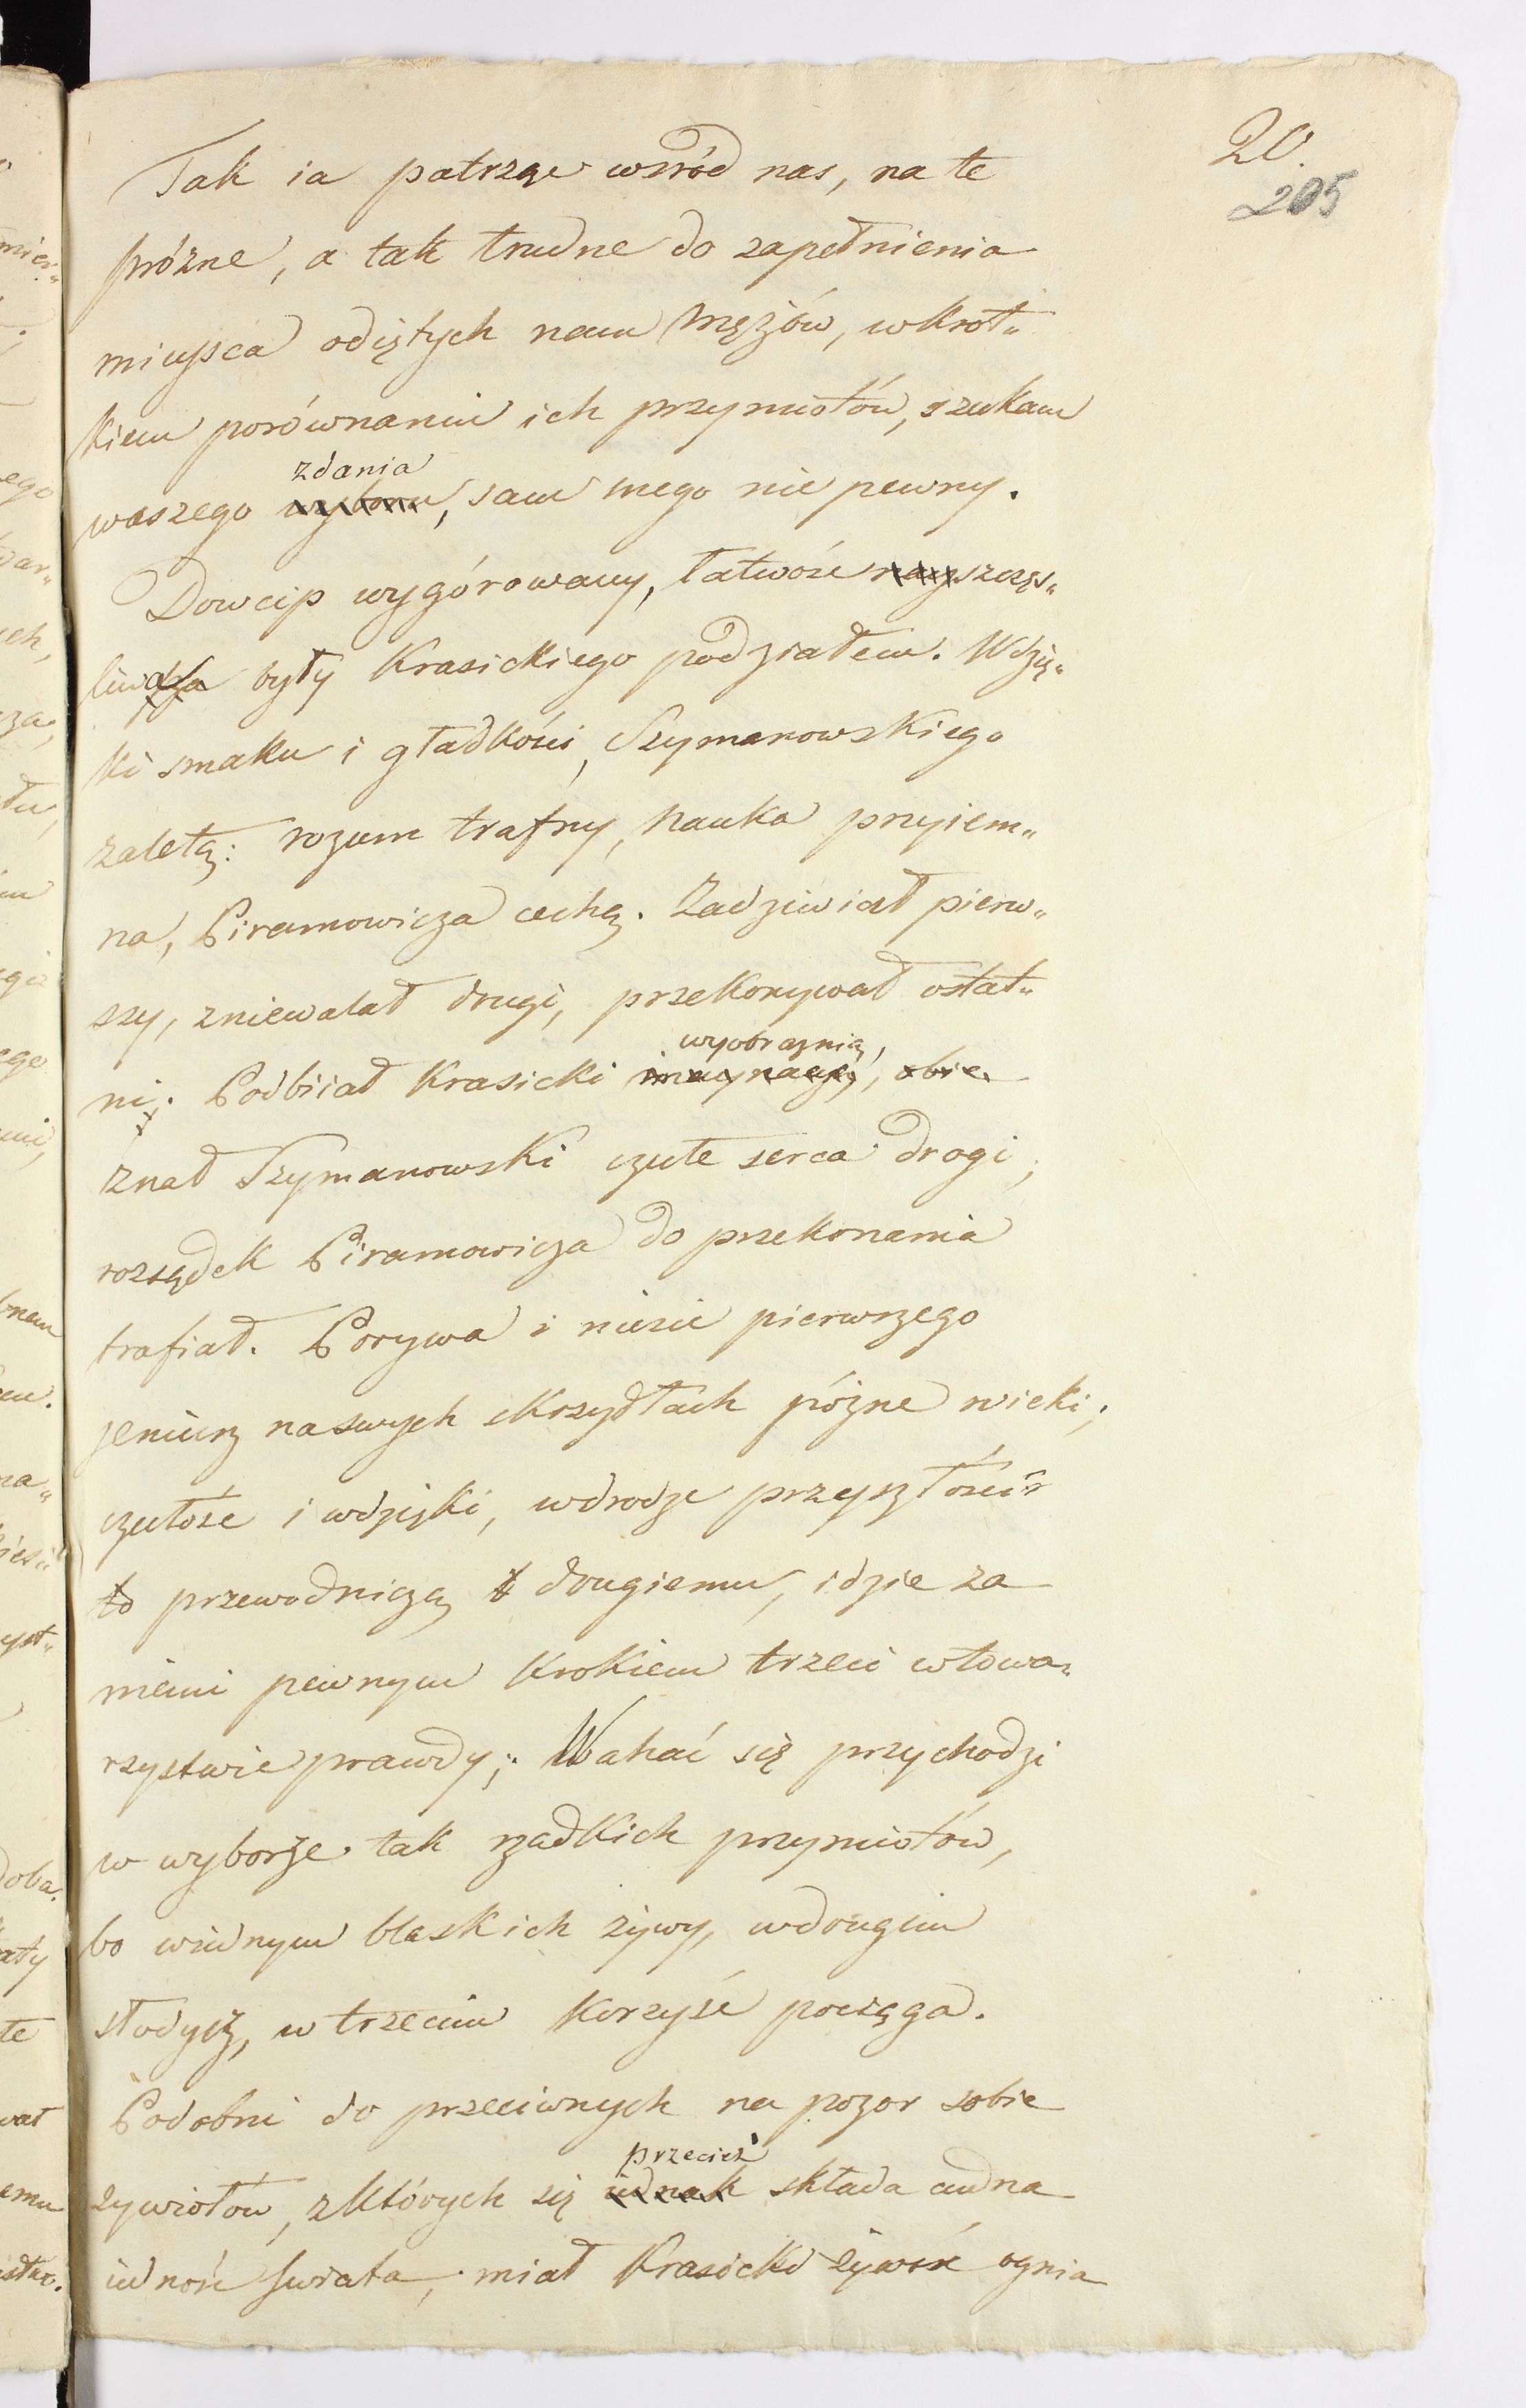 20.
205
Tak ia patrząc wśród nas, na te
próżne, a tak trudne do zapełnienia
mieysca odiętych nam Mężów, w krot„
kiem porównaniu ich przymiotów, szukam
zdania
waszego wyboru, sam mego nie pewny.
Dowcip wygórowany, łatwość nayszczęs„
liwsza były Krasickiego podziałem. Wdzię„
ki smaku i gładkości, Szymanowskiego
zaletą: rozum trafny, nauka przyiem„
na, Piramowicza cechą. Zadziwiał pierw„
szy, zniewalał drugi, przekonywał ostat„
wyobraznią,
ni. Podbiiał Krasicki imaynacyą, obie
znał Szymanowski czułe serca drogi;
rozsądek Piramowicza do przekonania
trafiał. Porywa i niesie pierwszego
jeniusz na swych skrzydłach pózne wieki;
czułość i wdzięki, w drodze przyszłości
to przewodniczą drugiemu, idzie za
niemi pewnym krokiem trzeci w towa„
rzystwie prawdy; Wahać się przychodzi
w wyborze tak rzadkich przymiotów,
bo w iednym blask ich żywy, w drugim
słodycz, w trzecim korzyść pociąga.
Podobni do przeciwnych na pozor sobie
przecież
żywiołów, z których się iednak składa cudna
iedność świata, miał Krasicki żywość ognia